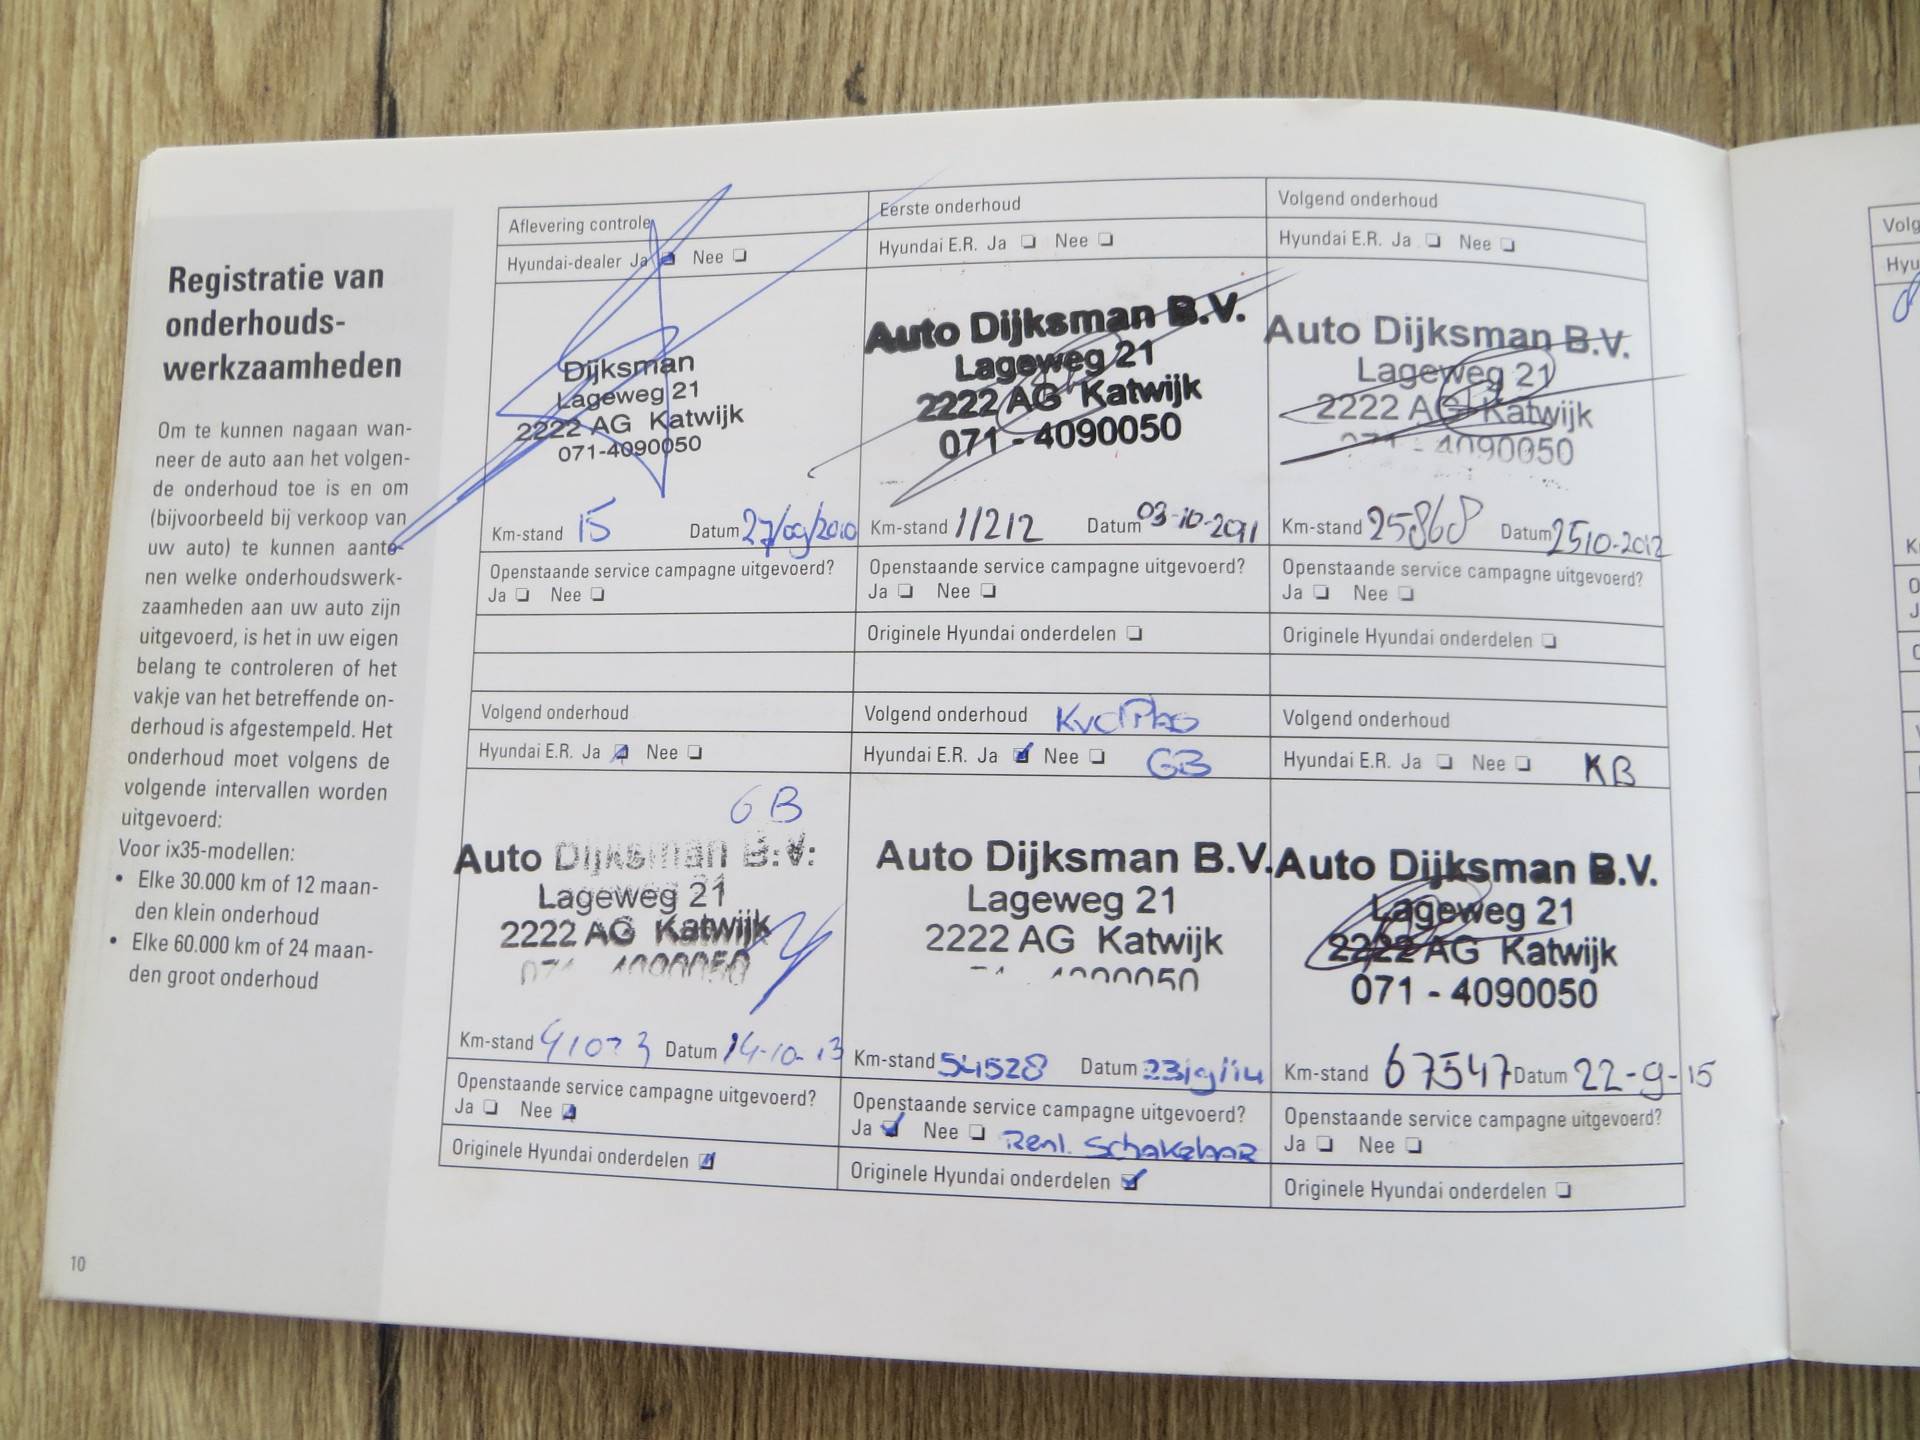 Registratie van
onderhouds-
werkzaamheden
Om te kunnen nagaan wan-
neer de auto aan het volgen-
de onderhoud toe is en om
(bijvoorbeeld bij verkoop van
uw auto) te kunnen aanto-
nen welke onderhoudswerk-
zaamheden aan uw auto zijn
uitgevoerd, is het in uw eigen
belang te controleren of het
vakje van het betreffende on-
derhoud is afgestempeld. Het
onderhoud moet volgens de
volgende intervallen worden
uitgevoerd:
Voor ix35-modellen:
• Elke 30.000 km of 12 maan-
den klein onderhoud
• Elke 60.000 km of 24 maan-
den groot onderhoud
10
Aflevering controle
Hyundai-dealer Ja Nee
Dijksman
Lageweg 21
2222 AG Katwijk
071-4090050
Km-stand 15 Datum 27/09/2010
Openstaande service campagne uitgevoerd?
Ja Nee
Eerste onderhoud
Hyundai E.R. Ja Nee
Auto Dijksman B.V.
Lageweg 21
2222 AG Katwijk
071 - 4090050
Km-stand 11212 Datum 03-10-2011
Openstaande service campagne uitgevoerd?
Ja Nee
Originele Hyundai onderdelen
Volgend onderhoud
Hyundai E.R. Ja Nee
Auto Dijksman B.V.
Lageweg 21
2222 AG Katwijk
071 - 4090050
Km-stand 25868 Datum 2510-2012
Openstaande service campagne uitgevoerd?
Ja Nee
Originele Hyundai onderdelen
Volgend onderhoud
Hyundai E.R. Ja Nee
GB
Auto Dijksman B.V.
Lageweg 21
2222 AG Katwijk
071 4090050
Km-stand 41073 Datum 14-10-13
Openstaande service campagne uitgevoerd?
Ja Nee
Originele Hyundai onderdelen
Volgend onderhoud
Hyundai E.R. Ja Nee GB
Auto Dijksman B.V.
Lageweg 21
2222 AG Katwijk
71 - 4090050
Km-stand 54528 Datum 23/9/14
Openstaande service campagne uitgevoerd?
Ja Nee Reml. Schakelaar
Originele Hyundai onderdelen
Volgend onderhoud
Hyundai E.R. Ja Nee KB
Auto Dijksman B.V.
Lageweg 21
2222 AG Katwijk
071 - 4090050
Km-stand 67547 Datum 22-9-15
Openstaande service campagne uitgevoerd?
Ja Nee
Originele Hyundai onderdelen
Volg
Hyu